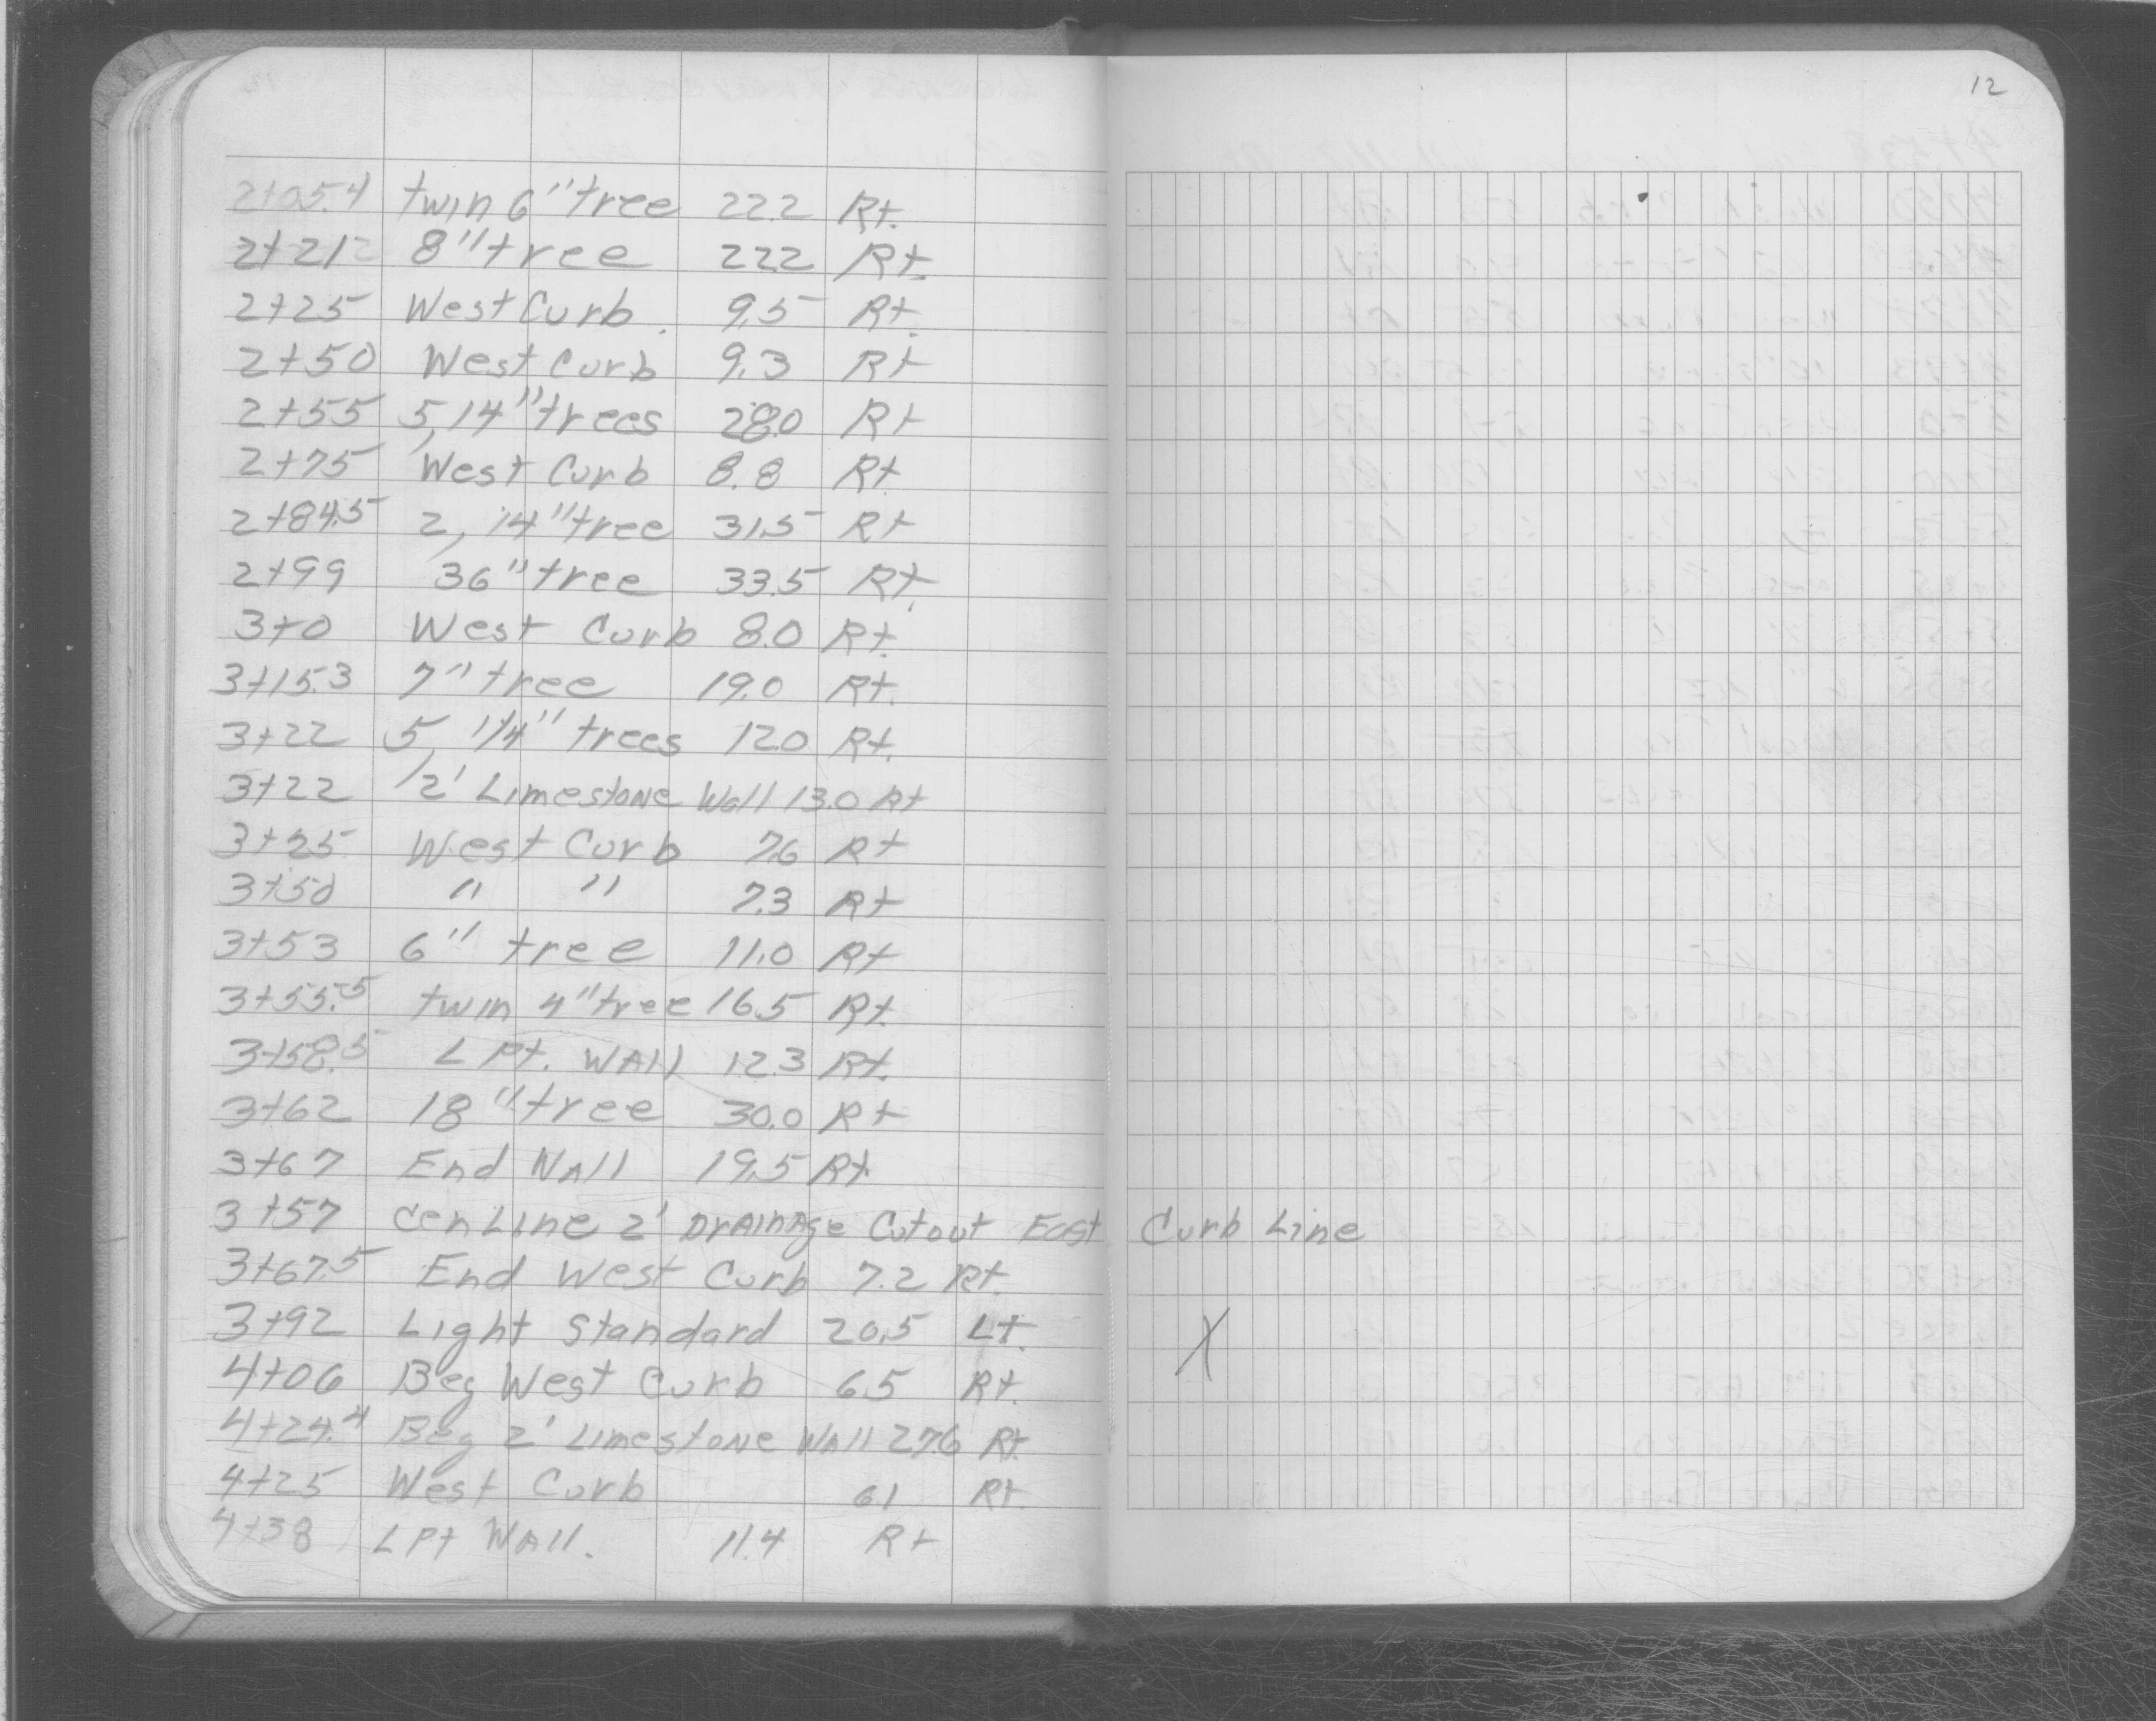 12
2+05.4 twin 6" tree 22.2 Rt.
2+21.2 8" tree 22.2 Rt.
2+25 West Curb. 9.5 Rt.
2+50 West Curb 9.3 Rt
2+55 5, 14" trees 28.0 Rt
2+75 West Curb 8.8 Rt.
2+84.5 2, 14" tree 31.5 Rt
2+99 36" tree 33.5 Rt.
3+0 West Curb 8.0 Rt.
3+15.3 7" tree 19.0 Rt.
3+22 5, 14" trees 12.0 Rt.
3+22 2' Limestone Wall 13.0 Rt
3+25 West Curb 7.6 Rt
3+50 " " 7.3 Rt
3+53 6" tree 11.0 Rt
3+55.5 twin 4" tree 16.5 Rt.
3+58.5 L Pt. Wall 12.3 Rt.
3+62 18" tree 30.0 Rt
3+67 End Wall 19.5 Rt.
3+57 CenLine 2' Drainage Cutout East Curb Line
3+67.5 End West Curb 7.2 Rt.
3+92 Light Standard 20.5 Lt. X
4+06 Beg West Curb 6.5 Rt.
4+24.4 Beg 2' Limestone Wall 27.6 Rt.
4+25 West Curb 6.1 Rt.
4+38 L Pt Wall. 11.4 Rt